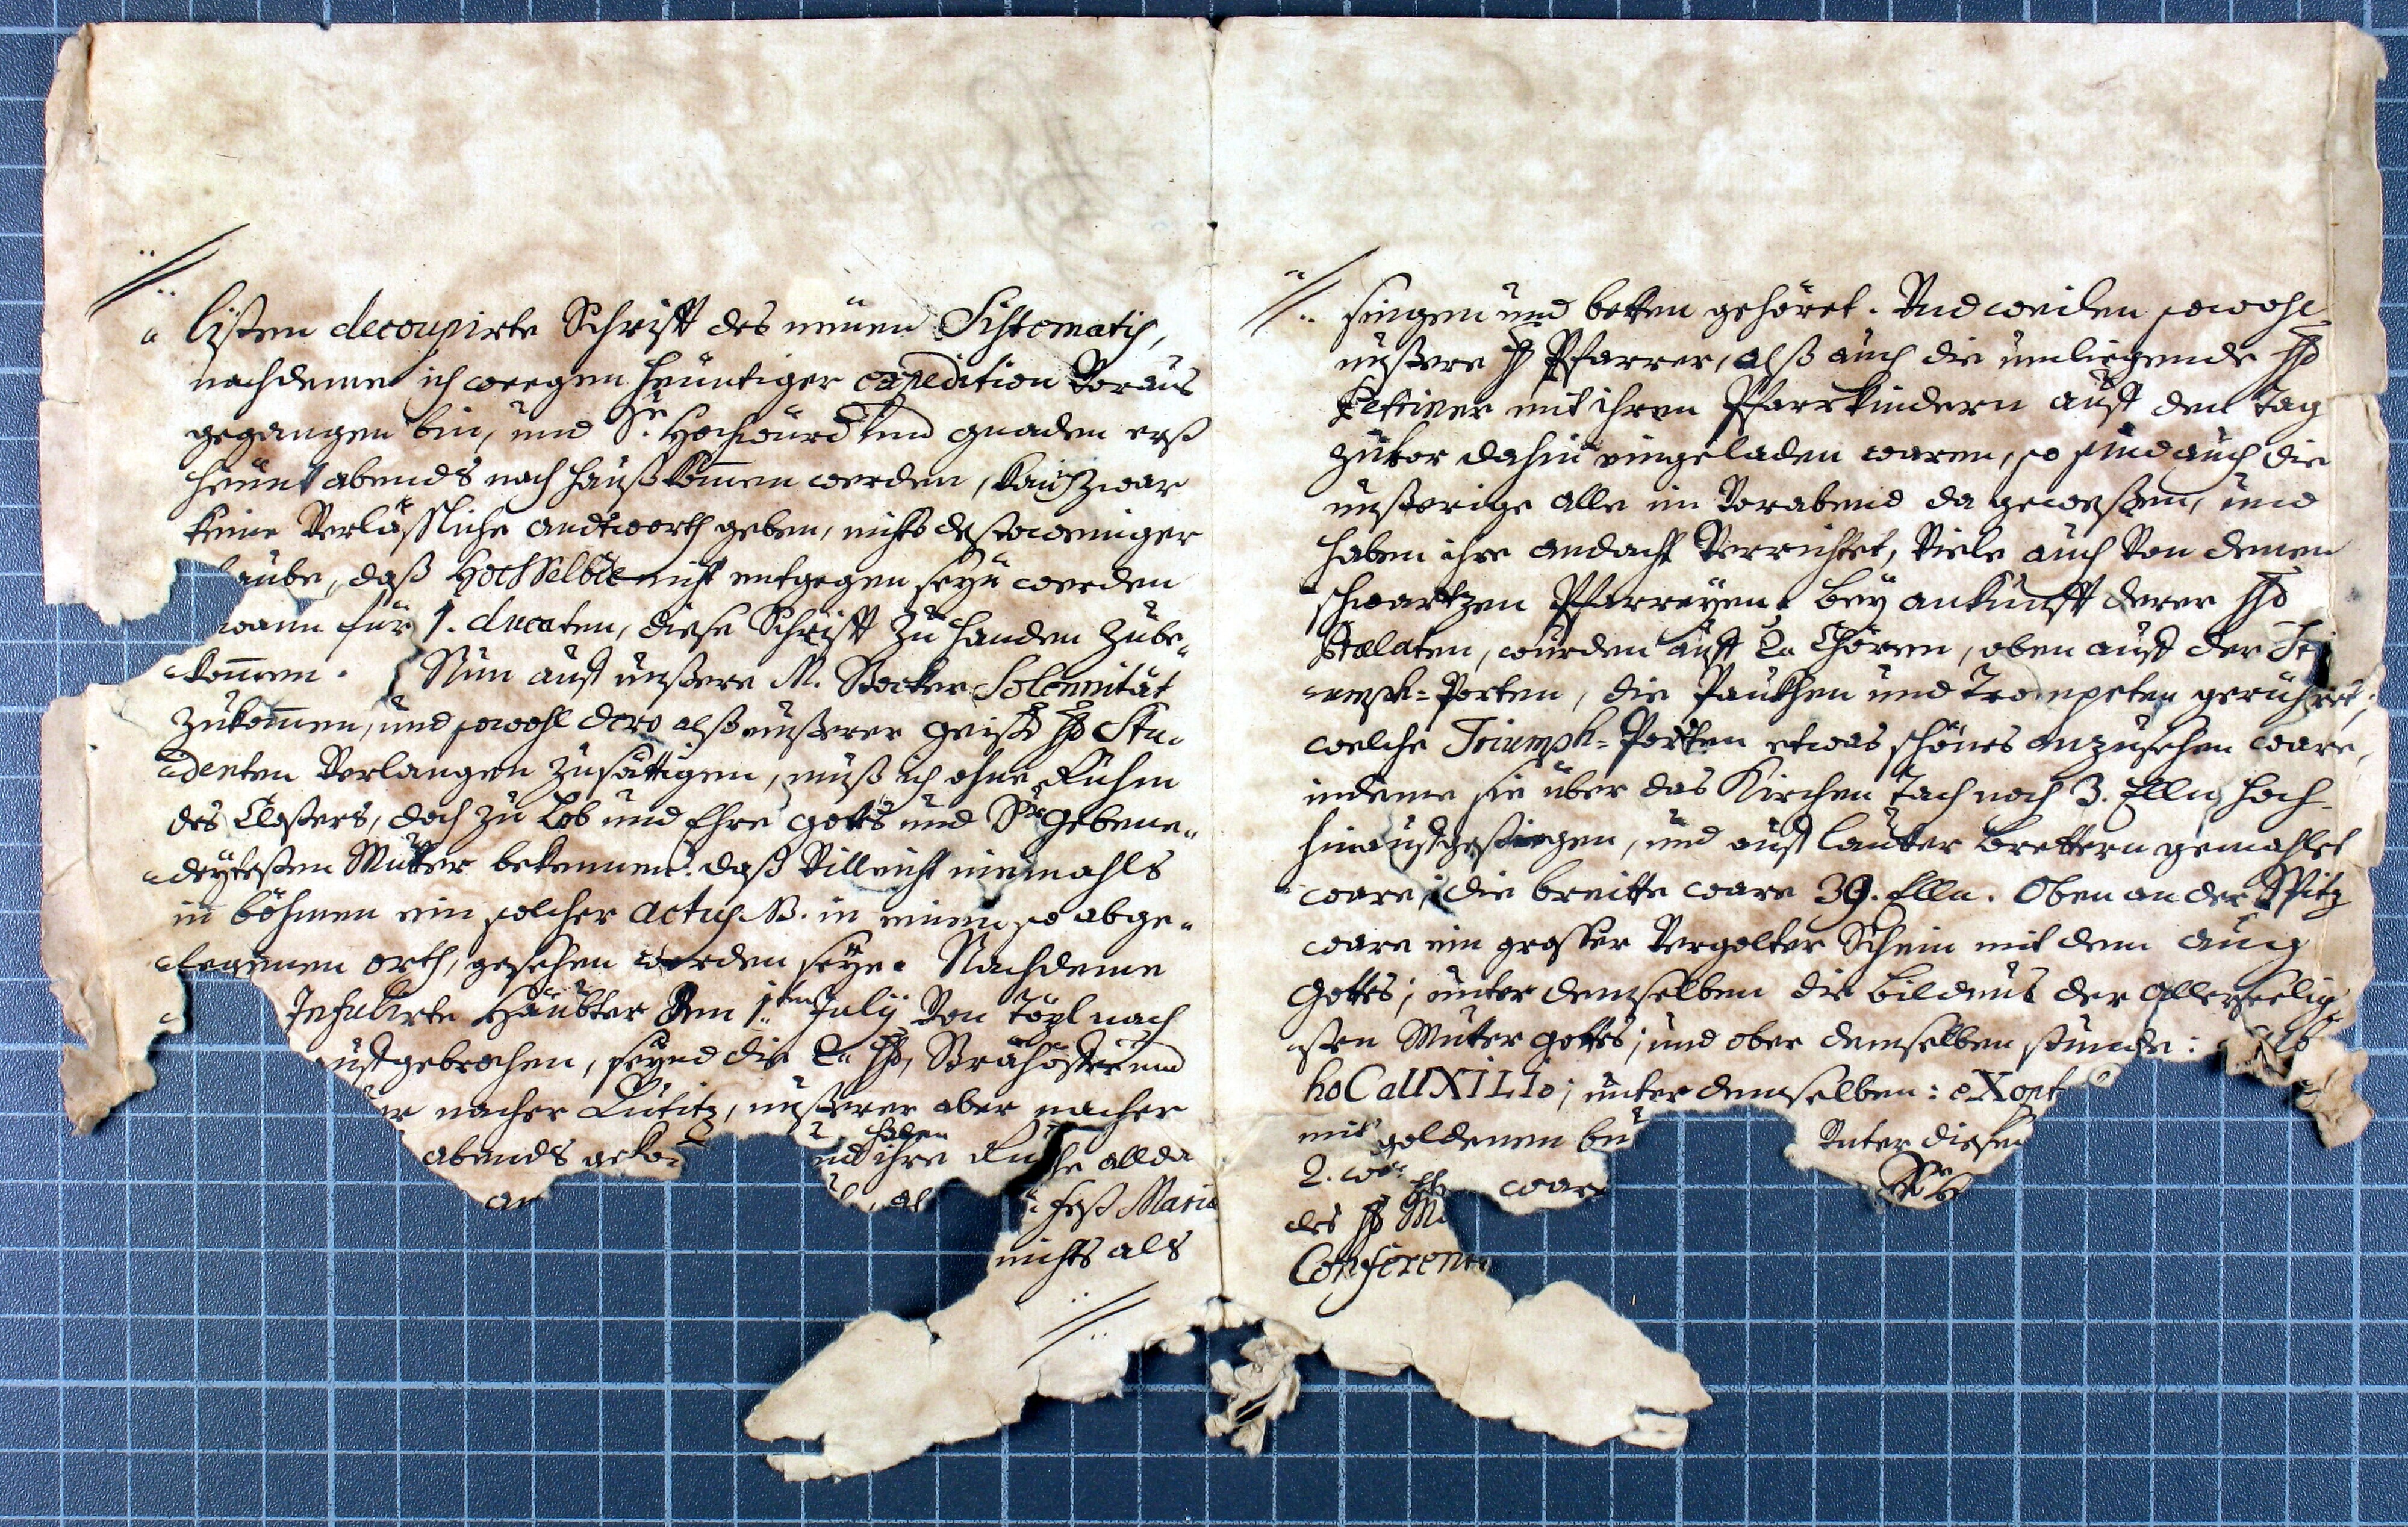 listen decoupirte Schrifft des neuen Sistematis,
nachdeme ich weegen heuntiger expedition Voraus
gegangen bin, und Sr. Hochwürd und gnaden erst
heunt abends nach hauß kom̄en werden, kan zwar
keine Verläßliche andtworth geben, nichts destoweniger
aube, daß Hochselbte nicht entgegen seyn werden
wann für 1. ducaten, diese Schrifft zu handen zube-
kom̄en. Nun auf unßere M. Stocker Solennität
zukom̄en, und sowohl dero alß unßerer geistl hh Stu-
denten Verlangen zusättigen, muß ich ohne Ruhm
des Closters, doch zu Lob und Ehre Gotts und Sr gebene-
deytesten Mutter bekennen: daß Villeicht niemahls
in böhmen ein solcher actus NB. in einem so abge-
legenen orth, gesehen worden seye. Nachdeme
Infulirte Häubter den 1ten July Von Töpl nach
aufgebrochen, seynd die 2 hh,
er nacher Lutitz, unßerer aber nacher
abends geko
haben
ihre Ruhe allda
an
fest Mariæ
nichts als
singen und betten gehöret. Und weilen sowohl
unßere hh Pfarrer, alß auch die umliegende hh
mit ihren Pfarrkindern auf den Tag
zuvor dahin eingeladen waren, so sind auch die
unßerige alle im Vorabend da geweßen, und
haben ihre andacht Verrichtet, Viele auch Von denen
schwartzen Pfarreyen. Bey ankunfft derer hh
Prælaten, wurden auff 2 Chören, oben auf der Tri
umph-Porten, die Paukhen und Trompeten gerühret;
welche Triumph-Porten etwas schönes anzusehen ware,
indeme sie über das Kirchen Tach noch 3. Elln hoch
hinaufgestiegen, und auf lauter brettern gemahlet
ware; die breitte ware 39. Elln. Oben an der Spitz
ware ein grosser Vergolter Schein mit dem aug
Gottes; unter demselben die bildnus der allerseelig-
sten Mutter gottes; und ober demselben stunde:
hoC aUXILIo; unter demselben: eXopt
mit goldenen bu
Unter diesen
2.
war
des hh M
Conferent